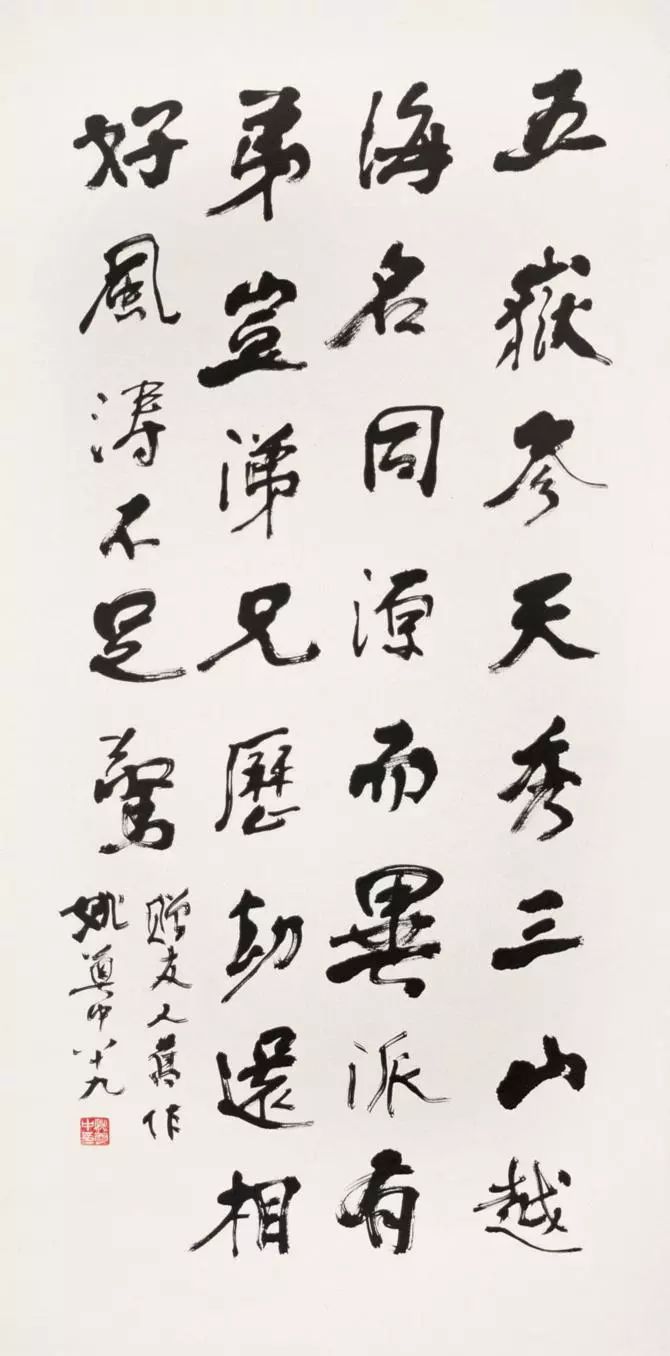 五嶽參天秀三山越
海名同源而異派有
弟豈兄歷劫還相
好風濤不足驚
贈友人舊作
姚奠中八十九